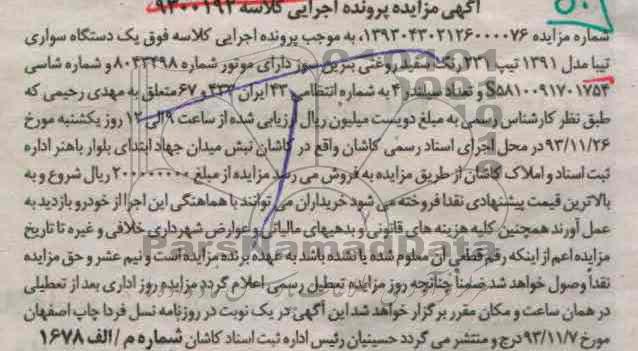 آگهی مزایده پرونده اجرایی کلاسه ۹۳۰۰۱۹۲
شماره مزایده ۱۳۹۳۰۴۳۰۲۱۲۶۰۰۰۰۷۶، به موجب پرونده اجرایی کلاسه فوق یک دستگاه سواری
تیبا مدل ۱۳۹۱ تیپ ۲۳۱ رنگ سفید روغنی بنزین سوز دارای موتور شماره ۸۰۴۳۴۹۸ و شماره شاسی
S۵۸۱۰۰۹۱۷۰۱۷۵۴ و تعداد سیلندر ۴ به شماره انتظامی ۴۳ ایران ۶۷ متعلق به مهدی رحیمی که
طبق نظر کارشناس رسمی به مبلغ دویست میلیون ریال ارزیابی شده از ساعت ۹ الی ۱۲ روز یکشنبه مورخ
۹۳/۱۱/۲۶ در محل اجرای اسناد رسمی کاشان واقع در کاشان نبش میدان جهاد ابتدای بلوار باهنر اداره
ثبت اسناد و املاک کاشان از طریق مزایده به فروش می رسد مزایده از مبلغ ۲۰۰۰۰۰۰۰۰ ریال شروع و به
بالاترین قیمت پیشنهادی نقدا فروخته می شود خریداران می توانند با هماهنگی این اجرا از خودرو بازدید به
عمل آورند همچنین کلیه هزینه های قانونی و بدهیهای مالیاتی و عوارض شهرداری خلافی و غیره تا تاریخ
مزایده اعم از اینکه رقم قطعی آن معلوم شده یا نشده باشد به عهده برنده مزایده است و نیم عشر و حق مزایده
نقداً وصول خواهد شد ضمناً چنانچه روز مزایده تعطیل رسمی اعلام گردد مزایده روز اداری بعد از تعطیلی
در همان ساعت و مکان مقرر برگزار خواهد شد این آگهی در یک نوبت در روزنامه نسل فردا چاپ اصفهان
مورخ ۹۳/۱۱/۷ درج و منتشر می گردد حسینیان رئیس اداره ثبت اسناد کاشان شماره م/الف ۱۶۷۸
ParsNamadData